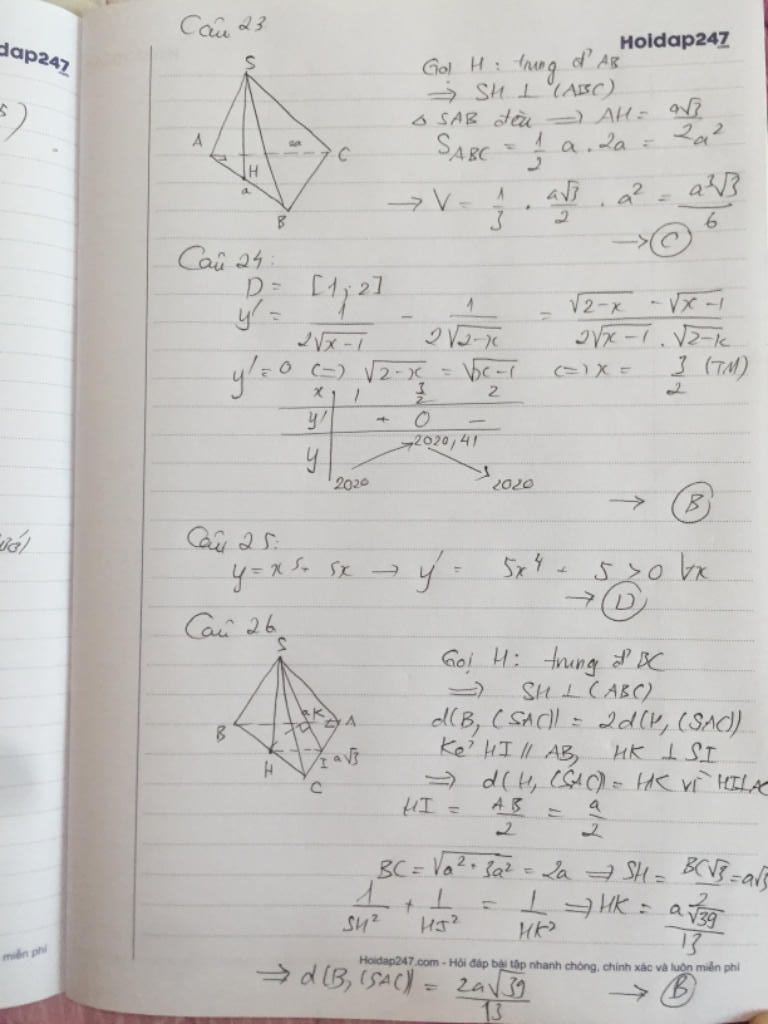 dap247
5)
miễn phí
Hoidap247
Câu 23
S
A
2a
C
H
a
B
Gọi H : trung đ' AB
=> SH ⊥ (ABC)
Δ SAB đều => AH = a√3/2
S_ABC = 1/2 a . 2a = a²
→ V = 1/3 . a√3/2 . a² = a³√3/6
→ C
Câu 24:
D = [1; 2]
y' = 1/(2√x-1) - 1/(2√2-x) = (√2-x - √x-1)/(2√x-1 . √2-x)
y' = 0 <=> √2-x = √x-1 <=> x = 3/2 (TM)
x | 1 3/2 2
y' | + 0 -
y | 2020 2020,41 2020
→ B
Câu 25:
y = x⁵ + 5x → y' = 5x⁴ + 5 > 0 ∀x
→ D
Câu 26
S
B
a
K
A
H
I
a√3
C
Gọi H : trung đ' BC
=> SH ⊥ (ABC)
d(B, (SAC)) = 2d(H, (SAC))
Kẻ HI // AB, HK ⊥ SI
=> d(H, (SAC)) = HK vì HI⊥AC
HI = AB/2 = a/2
BC = √a² + 3a² = 2a => SH = BC√3/2 = a√3
1/SH² + 1/HI² = 1/HK² => HK = a√39/13
Hoidap247.com - Hỏi đáp bài tập nhanh chóng, chính xác và luôn miễn phí
=> d(B, (SAC)) = 2a√39/13 → B